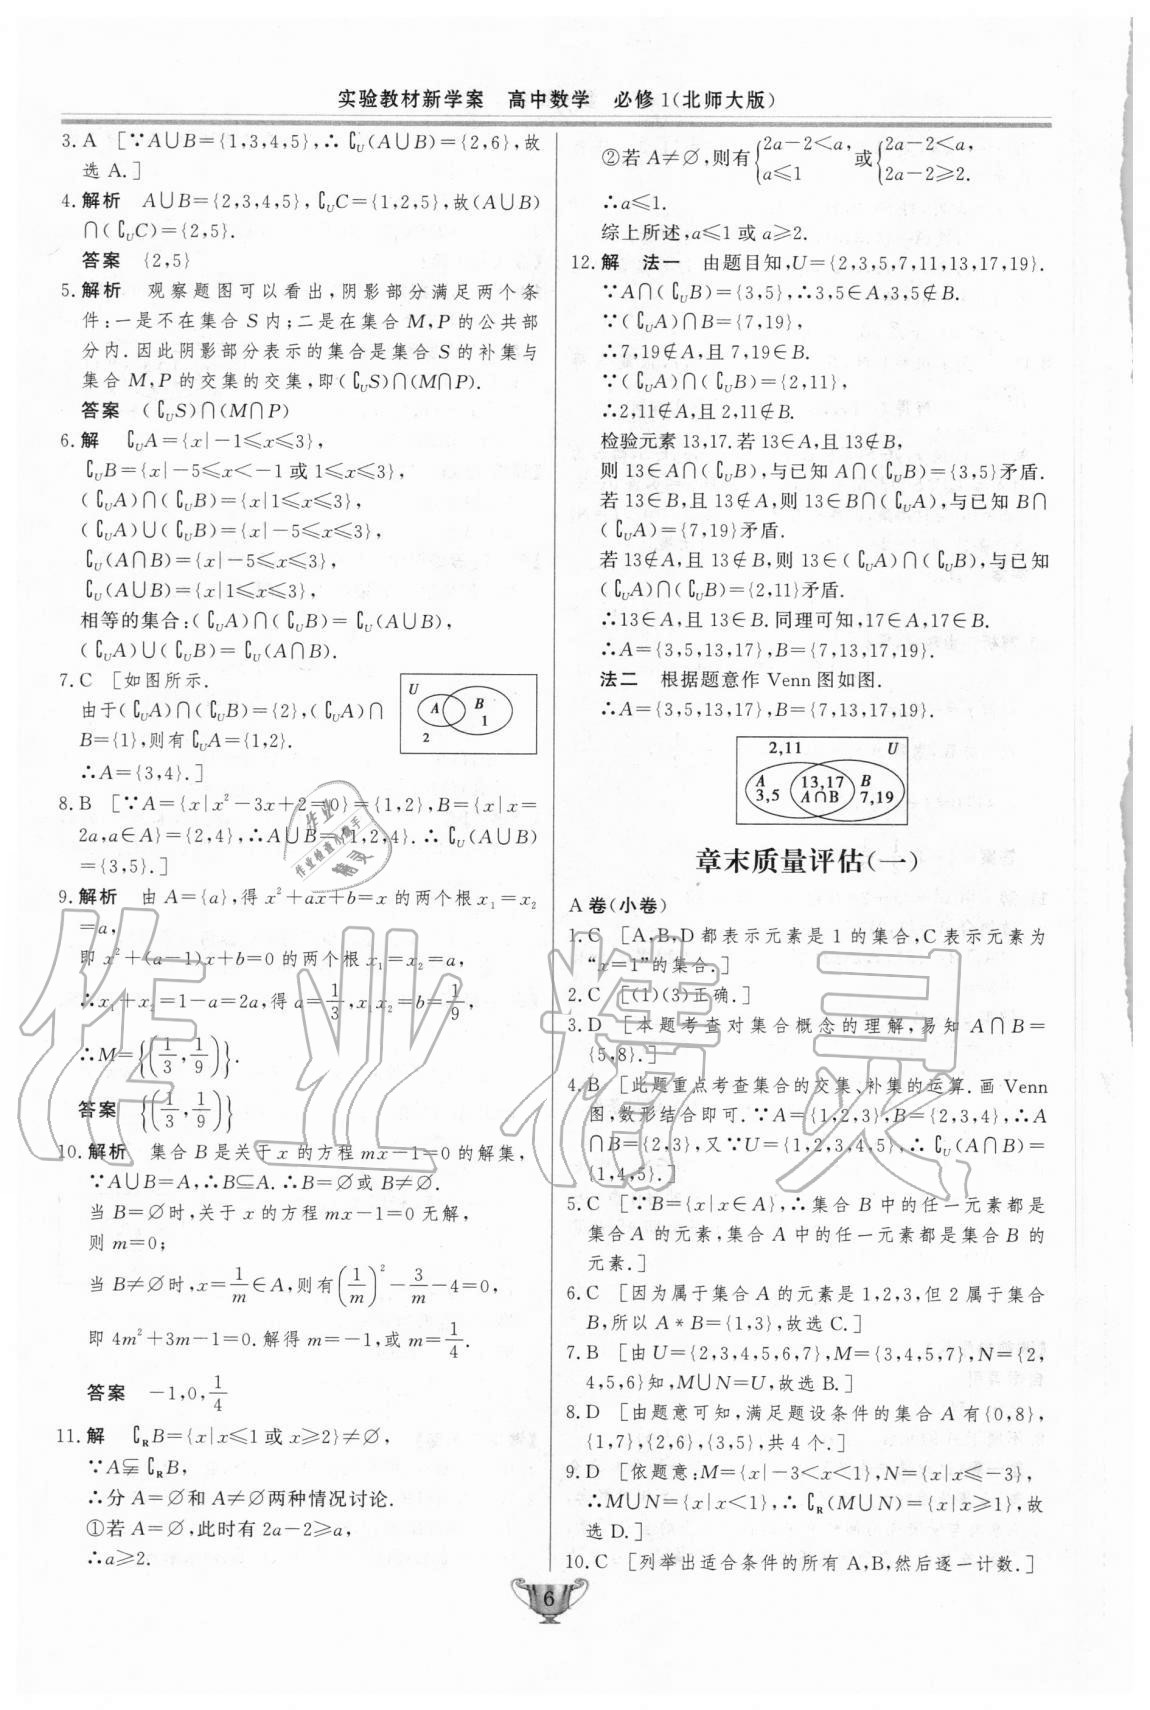 实验教材新学案 高中数学 必修1(北师大版)
3. A [∵A∪B={1,3,4,5},∴∁UA∪B)={2,6},故
选 A.]
4. 解析 A∪B={2,3,4,5},∁UC={1,2,5},故(A∪B)
∩(∁UC)={2,5}.
答案 {2,5}
5. 解析 观察题图可以看出,阴影部分满足两个条
件:一是不在集合 S 内;二是在集合 M,P 的公共部
分内.因此阴影部分表示的集合是集合 S 的补集与
集合 M,P 的交集的交集,即(∁US)∩(M∩P).
答案 (∁US)∩(M∩P)
6. 解 ∁UA={x|-1≤x≤3},
∁UB={x|-5≤x<-1 或 1≤x≤3},
(∁UA)∩(∁UB)={x|1≤x≤3},
(∁UA)∪(∁UB)={x|-5≤x≤3},
∁U(A∩B)={x|-5≤x≤3},
∁U(A∪B)={x|1≤x≤3},
相等的集合:(∁UA)∩(∁UB)=∁U(A∪B),
(∁UA)∪(∁UB)=∁U(A∩B).
7. C [如图所示.
由于(∁UA)∩(∁UB)={2},(∁UA)∩
B={1},则有∁UA={1,2}.
∴A={3,4}.]
U
A
B
1
2
8. B [∵A={x|x²-3x+2=0}={1,2},B={x|x=
2a,a∈A}={2,4},∴A∪B={1,2,4}.∴∁U(A∪B)
={3,5}.]
9. 解析 由 A={a},得 x²+ax+b=x 的两个根 x₁=x₂
=a,
即 x²+(a-1)x+b=0 的两个根 x₁=x₂=a,
∴x₁+x₂=1-a=2a,得 a=1/3,x₁x₂=b=1/9,
∴M={(1/3,1/9)}.
答案 {(1/3,1/9)}
10. 解析 集合 B 是关于 x 的方程 mx-1=0 的解集,
∵A∪B=A,∴B⊆A.∴B=∅或 B≠∅.
当 B=∅时,关于 x 的方程 mx-1=0 无解,
则 m=0;
当 B≠∅时,x=1/m∈A,则有(1/m)²-3/m-4=0,
即 4m²+3m-1=0.解得 m=-1,或 m=1/4.
答案 -1,0,1/4
11. 解 ∁RB={x|x≤1 或 x≥2}≠∅,
∵A⫋∁RB,
∴分 A=∅和 A≠∅两种情况讨论.
①若 A=∅,此时有 2a-2≥a,
∴a≥2.
②若 A≠∅,则有{2a-2<a, a≤1 或{2a-2<a, 2a-2≥2.
∴a≤1.
综上所述,a≤1 或 a≥2.
12. 解 法一 由题目知,U={2,3,5,7,11,13,17,19}.
∵A∩(∁UB)={3,5},∴3,5∈A,3,5∉B.
∵(∁UA)∩B={7,19},
∴7,19∉A,且 7,19∈B.
∵(∁UA)∩(∁UB)={2,11},
∴2,11∉A,且 2,11∉B.
检验元素 13,17.若 13∈A,且 13∉B,
则 13∈A∩(∁UB),与已知 A∩(∁UB)={3,5}矛盾.
若 13∈B,且 13∉A,则 13∈B∩(∁UA),与已知 B∩
(∁UA)={7,19}矛盾.
若 13∉A,且 13∉B,则 13∈(∁UA)∩(∁UB),与已知
(∁UA)∩(∁UB)={2,11}矛盾.
∴13∈A,且 13∈B.同理可知,17∈A,17∈B.
∴A={3,5,13,17},B={7,13,17,19}.
法二 根据题意作 Venn 图如图.
∴A={3,5,13,17},B={7,13,17,19}.
2,11 U
A 13,17 B
3,5 A∩B 7,19
章末质量评估(一)
A 卷(小卷)
1. C [A,B,D 都表示元素是 1 的集合,C 表示元素为
“x=1”的集合.]
2. C [(1)(3)正确.]
3. D [本题考查对集合概念的理解,易知 A∩B=
{5,8}.]
4. B [此题重点考查集合的交集、补集的运算.画 Venn
图,数形结合即可.∵A={1,2,3},B={2,3,4},∴A
∩B={2,3},又∵U={1,2,3,4,5},∴∁U(A∩B)=
{1,4,5}.]
5. C [∵B={x|x∈A},∴集合 B 中的任一元素都是
集合 A 的元素,集合 A 中的任一元素都是集合 B 的
元素.]
6. C [因为属于集合 A 的元素是 1,2,3,但 2 属于集合
B,所以 A*B={1,3},故选 C.]
7. B [由 U={2,3,4,5,6,7},M={3,4,5,7},N={2,
4,5,6}知,M∪N=U,故选 B.]
8. D [由题意可知,满足题设条件的集合 A 有{0,8},
{1,7},{2,6},{3,5},共 4 个.]
9. D [依题意:M={x|-3<x<1},N={x|x≤-3},
∴M∪N={x|x<1},∴∁R(M∪N)={x|x≥1},故
选 D.]
10. C [列举出适合条件的所有 A,B,然后逐一计数.]
6
作业精灵